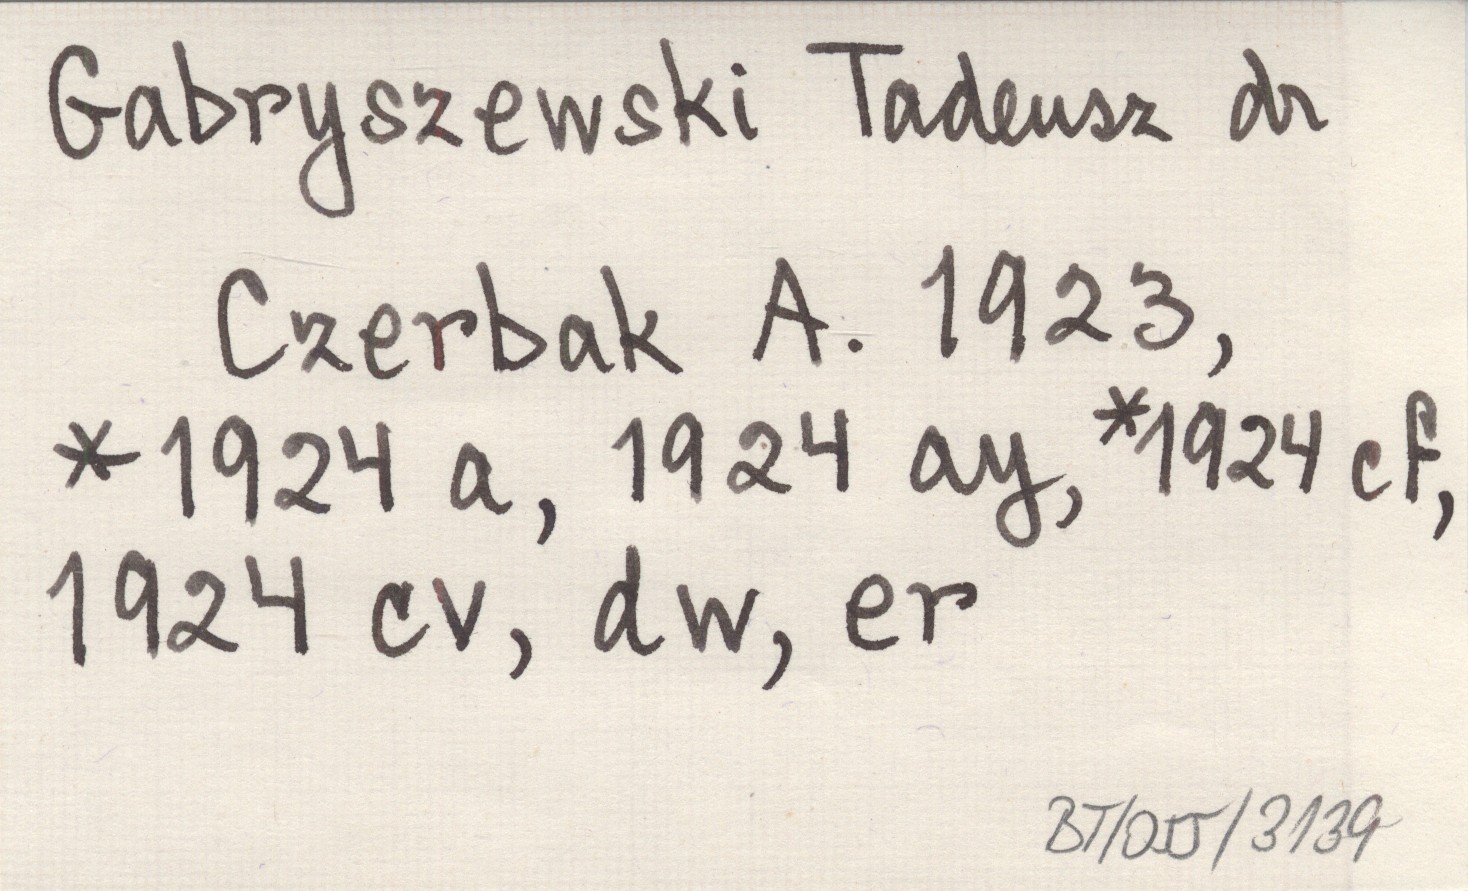 Gabryszewski Tadeusz dr
Czerbak A. 1923,
*1924 a, 1924 ay, *1924 cf,
1924 cv, dw, er
3139